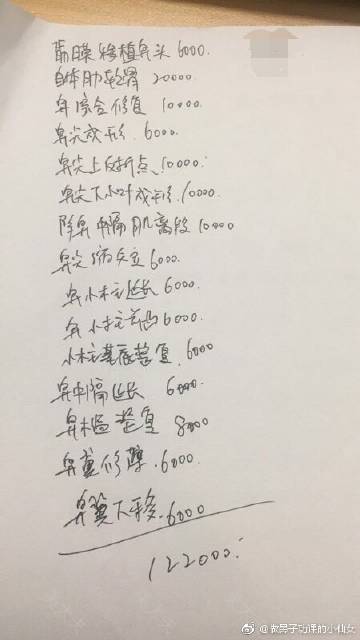 筋膜移植鼻头 6000.
自体肋软骨 20000.
鼻综合修复 10000.
鼻尖成形. 6000.
鼻尖上反折点、10000.
鼻尖下小叶成形.10000.
降鼻中隔肌离段 10000
鼻尖 6000.
鼻小柱延长 6000.
鼻小柱 6000.
小柱基底整复. 6000
鼻中隔延长 6000.
鼻槛整复 8000
鼻翼修薄. 6000.
鼻翼下移. 6000
122000.
@做男子功课的小仙女